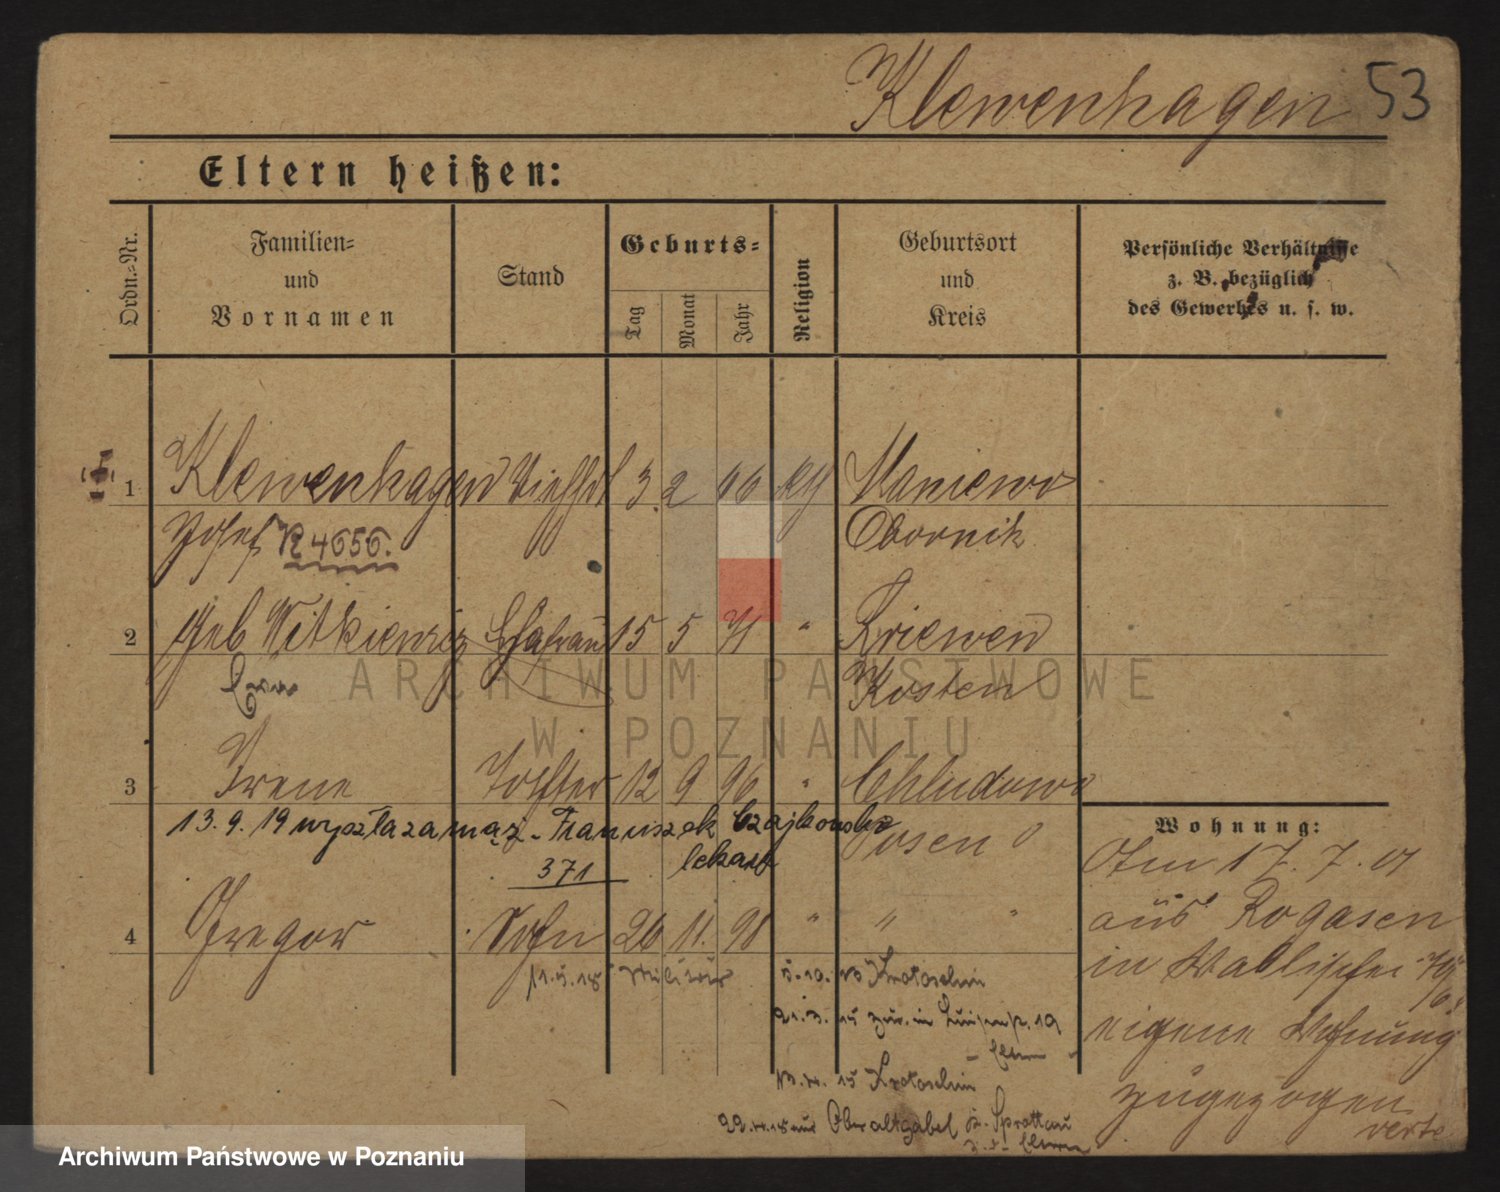 Klewenhagen 53
Eltern heißen:
Ordn.-Nr.
Familien-
und
Vornamen
Stand
Geburts-
Tag
Monat
Jahr
Religion
Geburtsort
und
Kreis
Persönliche Verhältnisse
z. B. bezüglich
des Gewerbes u. s. w.
1 Klewenhagen 3. 2 66 Maniewo
Josef R 4656. Obornik
2 geb Witkiewicz Ehefrau 15 5 71 " Kriewen
Eva Kosten
3 Irene Tochter 12 9 96 " Chludowo
13.9.19 wyszła za mąż - Franciszek Czajkowski Posen O
371 lekarz
4 Gregor Sohn 26 11. 98 " " "
Militär 5.10. Krotoschin
21.3.15 zur. in 19
Eltern
15 Krotoschin
22. 18 aus Oberaltgabel Sprottau
Eltern
Wohnung:
Am 17.7.01
aus Rogasen
in Wallischei
eigene Wohnung
zugezogen
verte
ARCHIWUM PAŃSTWOWE
W POZNANIU
Archiwum Państwowe w Poznaniu